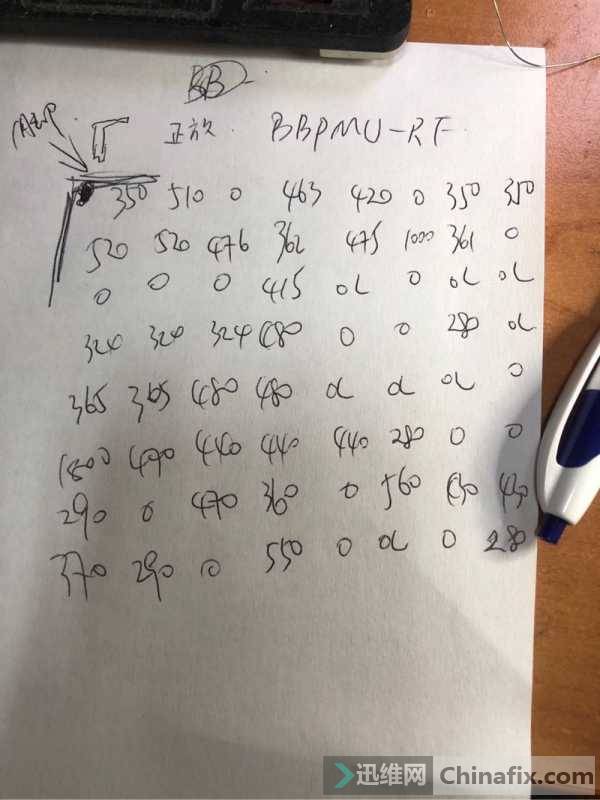 BB
正放. BBPMU-RF
350 510 0 463 420 0 350 350
520 520 476 362 475 1000 361 0
0 0 0 415 OL 0 OL OL
324 324 324 480 0 0 280 OL
365 365 480 480 OL OL OL 0
1800 490 440 440 440 280 0 0
290 0 470 360 0 560 450 450
370 290 0 550 0 OL 0 280
迅维网 Chinafix.com